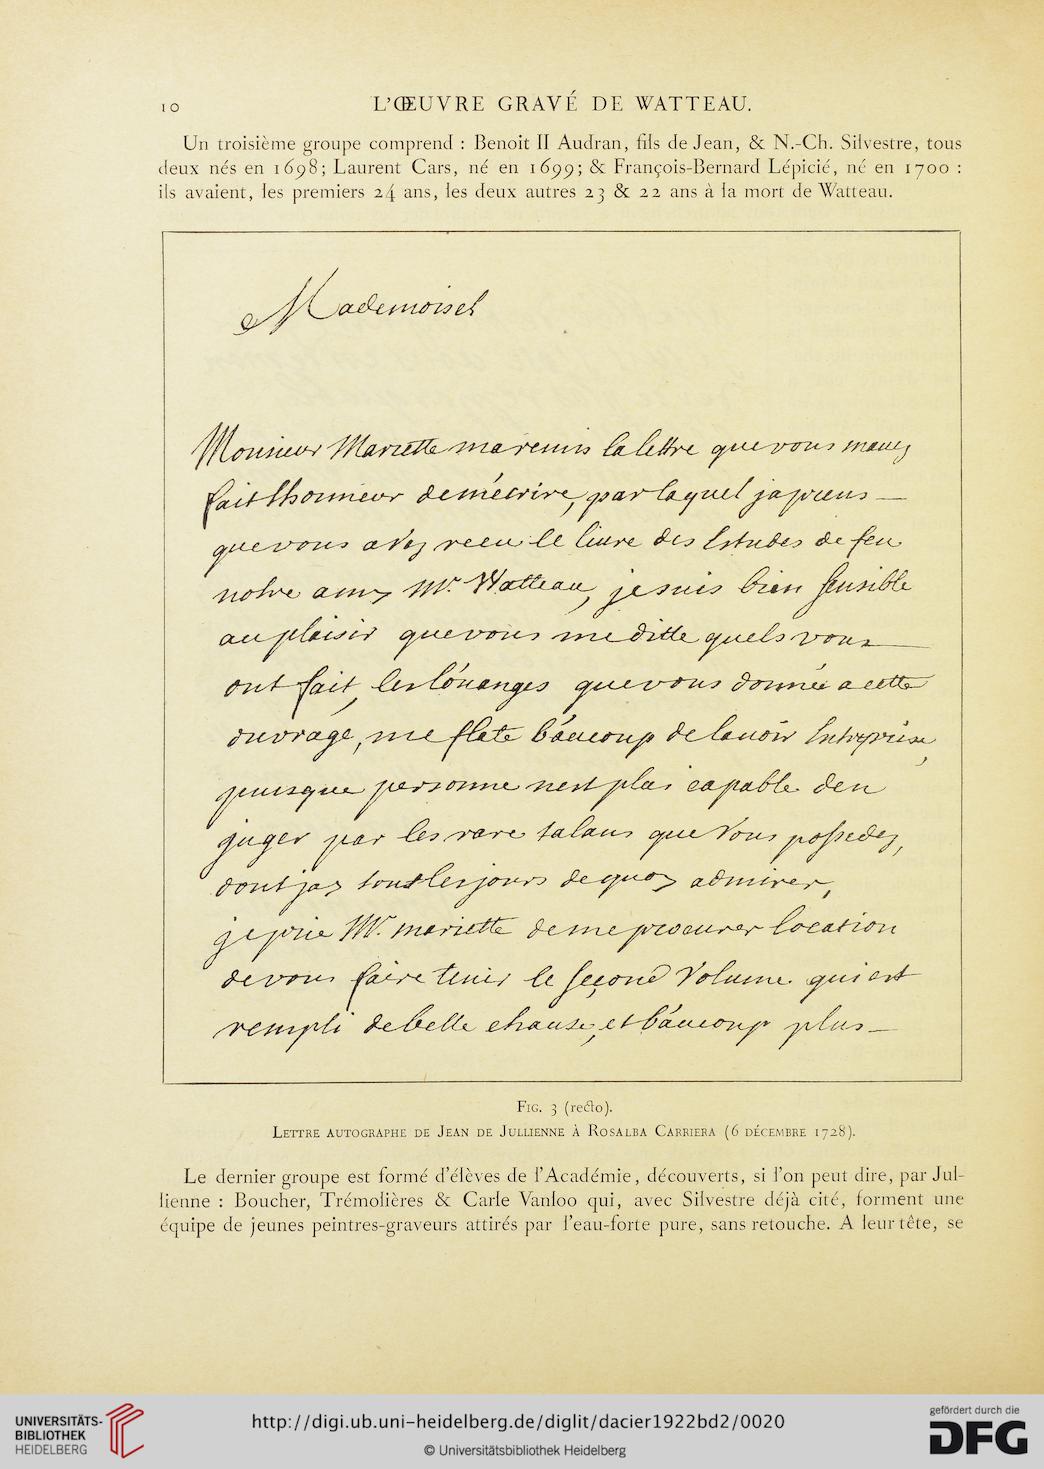 10
L'ŒUVRE GRAVÉ DE WATTEAU.
Un troisième groupe comprend : Benoit II Audran, fils de Jean, & N.-Ch. Silvestre, tous
deux nés en 1698; Laurent Cars, né en 1699; & François-Bernard Lépicié, né en 1700 :
ils avaient, les premiers 24 ans, les deux autres 23 & 22 ans à la mort de Watteau.
Mademoisel
Monsieur Mariette ma remis la lettre que vous mavez
fait lhonneur de mécrire, par laquel japrens
que vous avez receu le livre des Estudes de feu
notre amy Mr. Watteau, je suis bien sensible
au plaisir que vous me ditte quels vous
ont fait, les loüanges que vous donnée a cette
ouvrage, me flate báucoup de lauoir Entreprise,
puisque personne nest plus capable den
juger par les rare talans que vous possedez,
dont jay tout les jours de quoy admirer,
je prie Mr. mariette de me procurer location
de vous faire tenir le second volume qui est
rempli de belle chause, et báucoup plus
FIG. 3 (recto).
LETTRE AUTOGRAPHE DE JEAN DE JULLIENNE À ROSALBA CARRIERA (6 DÉCEMBRE 1728).
Le dernier groupe est formé d'élèves de l'Académie, découverts, si l'on peut dire, par Jul-
lienne : Boucher, Trémolières & Carle Vanloo qui, avec Silvestre déjà cité, forment une
équipe de jeunes peintres-graveurs attirés par l'eau-forte pure, sans retouche. A leur tête, se
UNIVERSITÄTS-
BIBLIOTHEK
HEIDELBERG
http://digi.ub.uni-heidelberg.de/diglit/dacier1922bd2/0020
© Universitätsbibliothek Heidelberg
gefördert durch die
DFG